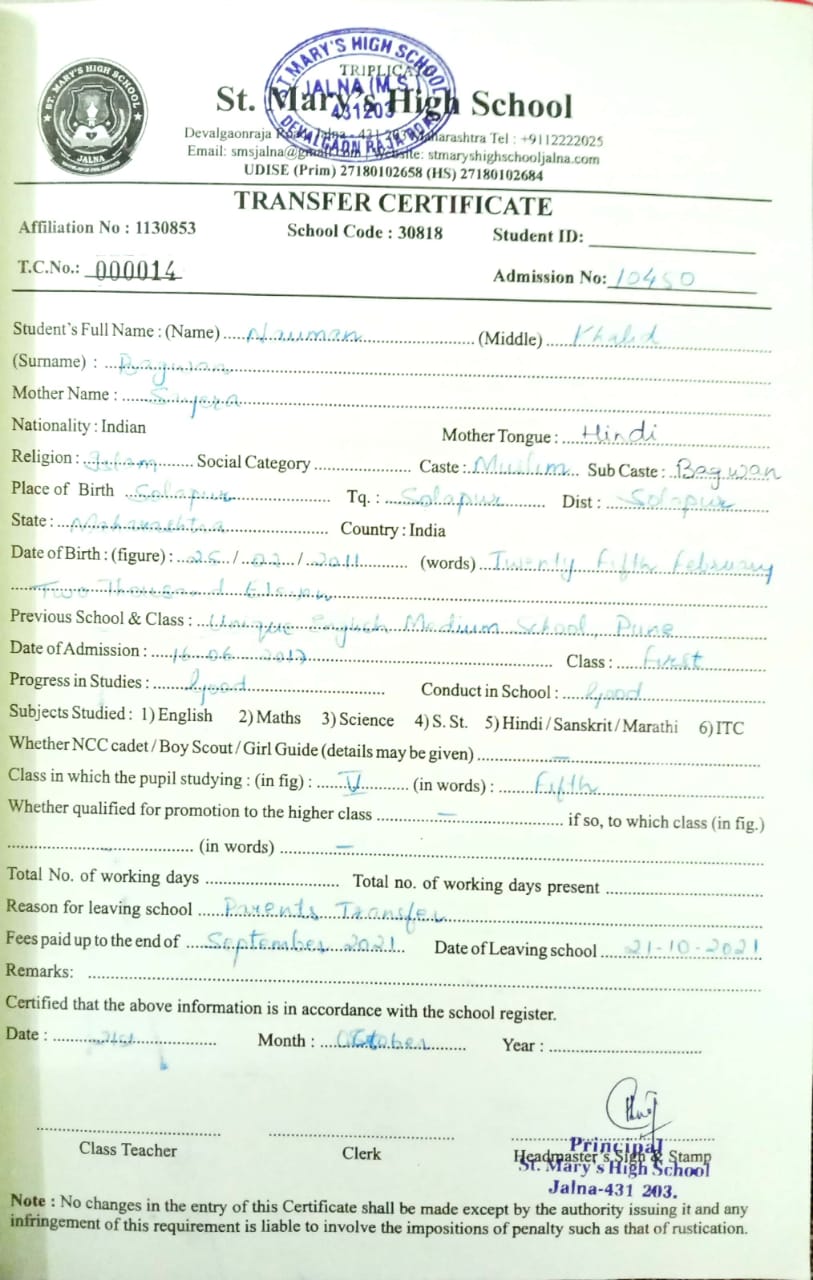 ST. MARY'S HIGH SCHOOL
JALNA
ST. MARY'S HIGH SCHOOL
JALNA (M.S.)
431203
DEVALGAON RAJA ROAD
TRIPLICA
St. Mary's High School
Devalgaonraja Road, Jalna - 431 203 Maharashtra Tel : +9112222025
Email: smsjalna@gmail.com Website: stmaryshighschooljalna.com
UDISE (Prim) 27180102658 (HS) 27180102684
TRANSFER CERTIFICATE
Affiliation No : 1130853 School Code : 30818 Student ID:
T.C.No.: 000014 Admission No: 10450
Student's Full Name : (Name) Nauman (Middle) Khalid
(Surname) : Bagwan
Mother Name :
Nationality : Indian Mother Tongue : Hindi
Religion : Islam Social Category Caste : Muslim Sub Caste : Bagwan
Place of Birth Solapur Tq. : Solapur Dist : Solapur
State : Maharashtra Country : India
Date of Birth : (figure) : 25 / 02 / 2011 (words) Twenty Fifth February
Two Thousand Eleven
Previous School & Class : Unique English Medium School, Pune
Date of Admission : 16 06 2017 Class : First
Progress in Studies : Good Conduct in School : Good
Subjects Studied : 1) English 2) Maths 3) Science 4) S. St. 5) Hindi / Sanskrit / Marathi 6) ITC
Whether NCC cadet / Boy Scout / Girl Guide (details may be given) —
Class in which the pupil studying : (in fig) : V (in words) : Fifth
Whether qualified for promotion to the higher class — if so, to which class (in fig.)
(in words) —
Total No. of working days Total no. of working days present
Reason for leaving school Parents Transfer
Fees paid up to the end of September 2021 Date of Leaving school 21-10-2021
Remarks:
Certified that the above information is in accordance with the school register.
Date : 21st Month : October Year :
Class Teacher Clerk Headmaster's Sign & Stamp
Principal
St. Mary's High School
Jalna-431 203.
Note : No changes in the entry of this Certificate shall be made except by the authority issuing it and any
infringement of this requirement is liable to involve the impositions of penalty such as that of rustication.